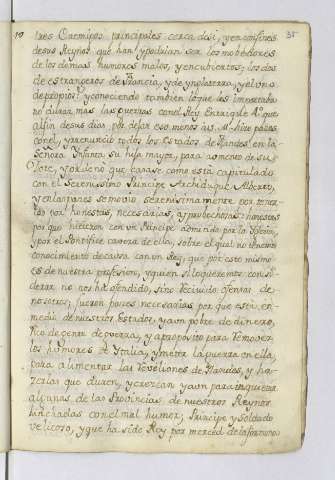 35
tres Enemigos principales cerca desi, y en confines
de sus Reynos que han y podrian ser los mobedores
de los demas humores malos, y encubiertos; los dos
de estrangeros de Francia, y de ynglaterra, y el uno
de propios: y conociendo tambien lo que les importaba
no durar mas las guerras con el Rey Enrique 4º que
al fin de sus dias por dejar eso menos a su Alt. hizo pazes
con el, y renunció todos los Estados de Flandes en la
Señora Infanta su hija mayor, para aumento de su
Dote, y ordenó que casase como está capitulado
con el Serenissimo Principe Archiduque Alberto,
y en las pazes se movio serenissimamente por tener
las por honestas, necesarias, y probechosas: honestas
por que hicieron con un Principe admitido por la Yglesia,
y por el Pontifice cavera de ella, sobre el qual no tenemos
conocimiento de causa con un Rey, que por este mismo
es de nuestra profesion, y quien si lo queremos consi
derar no nos ha ofendido, sino recivido ofensas de
nosotros; fueron pazes necesarias por que está en
medio de nuestros Estados, y aun pobre de dinero,
rico de gente de guerra, y a proposito para remover
los humores de Ytalia, y meter la guerra en ella,
para alimentar las reveliones de Flandes, y ha-
zerlas que duren, y crezcan y aun para inquietar
algunas de las Provincias de nuestros Reynos
hinchadas con el mal humor, Principe y Soldado
velicoso, y que ha sido Rey por merced de la fortuna